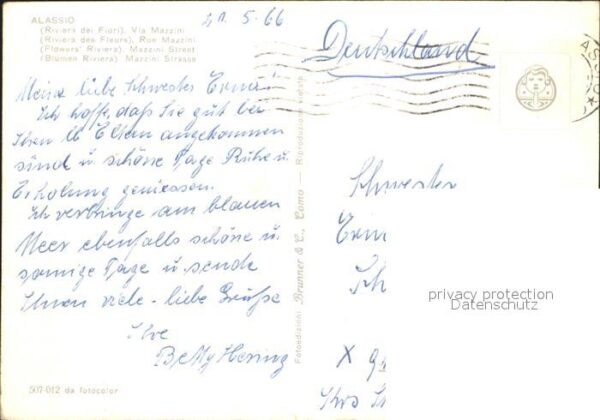 ALASSIO
(Riviera dei Fiori), Via Mazzini
(Riviera des Fleurs), Rue Mazzini
(Flowers' Riviera), Mazzini Street
(Blumen Riviera) Mazzini Strasse
21. 5. 66
Deutschland
Meine liebe Schwester Erni!
Ich hoffe, daß Sie gut bei
Ihren lb Eltern angekommen
sind u. schöne Tage Ruhe u.
Erholung geniessen.
Ich verbringe am blauen
Meer ebenfalls schöne u.
sonnige Tage u. sende
Ihnen viele liebe Grüße
Ihre
Hering
507-012 da fotocolor
Fotoedizioni Brunner & C., Como — Riproduzione vietata
Schwester
Ern
Sch
privacy protection
Datenschutz
X